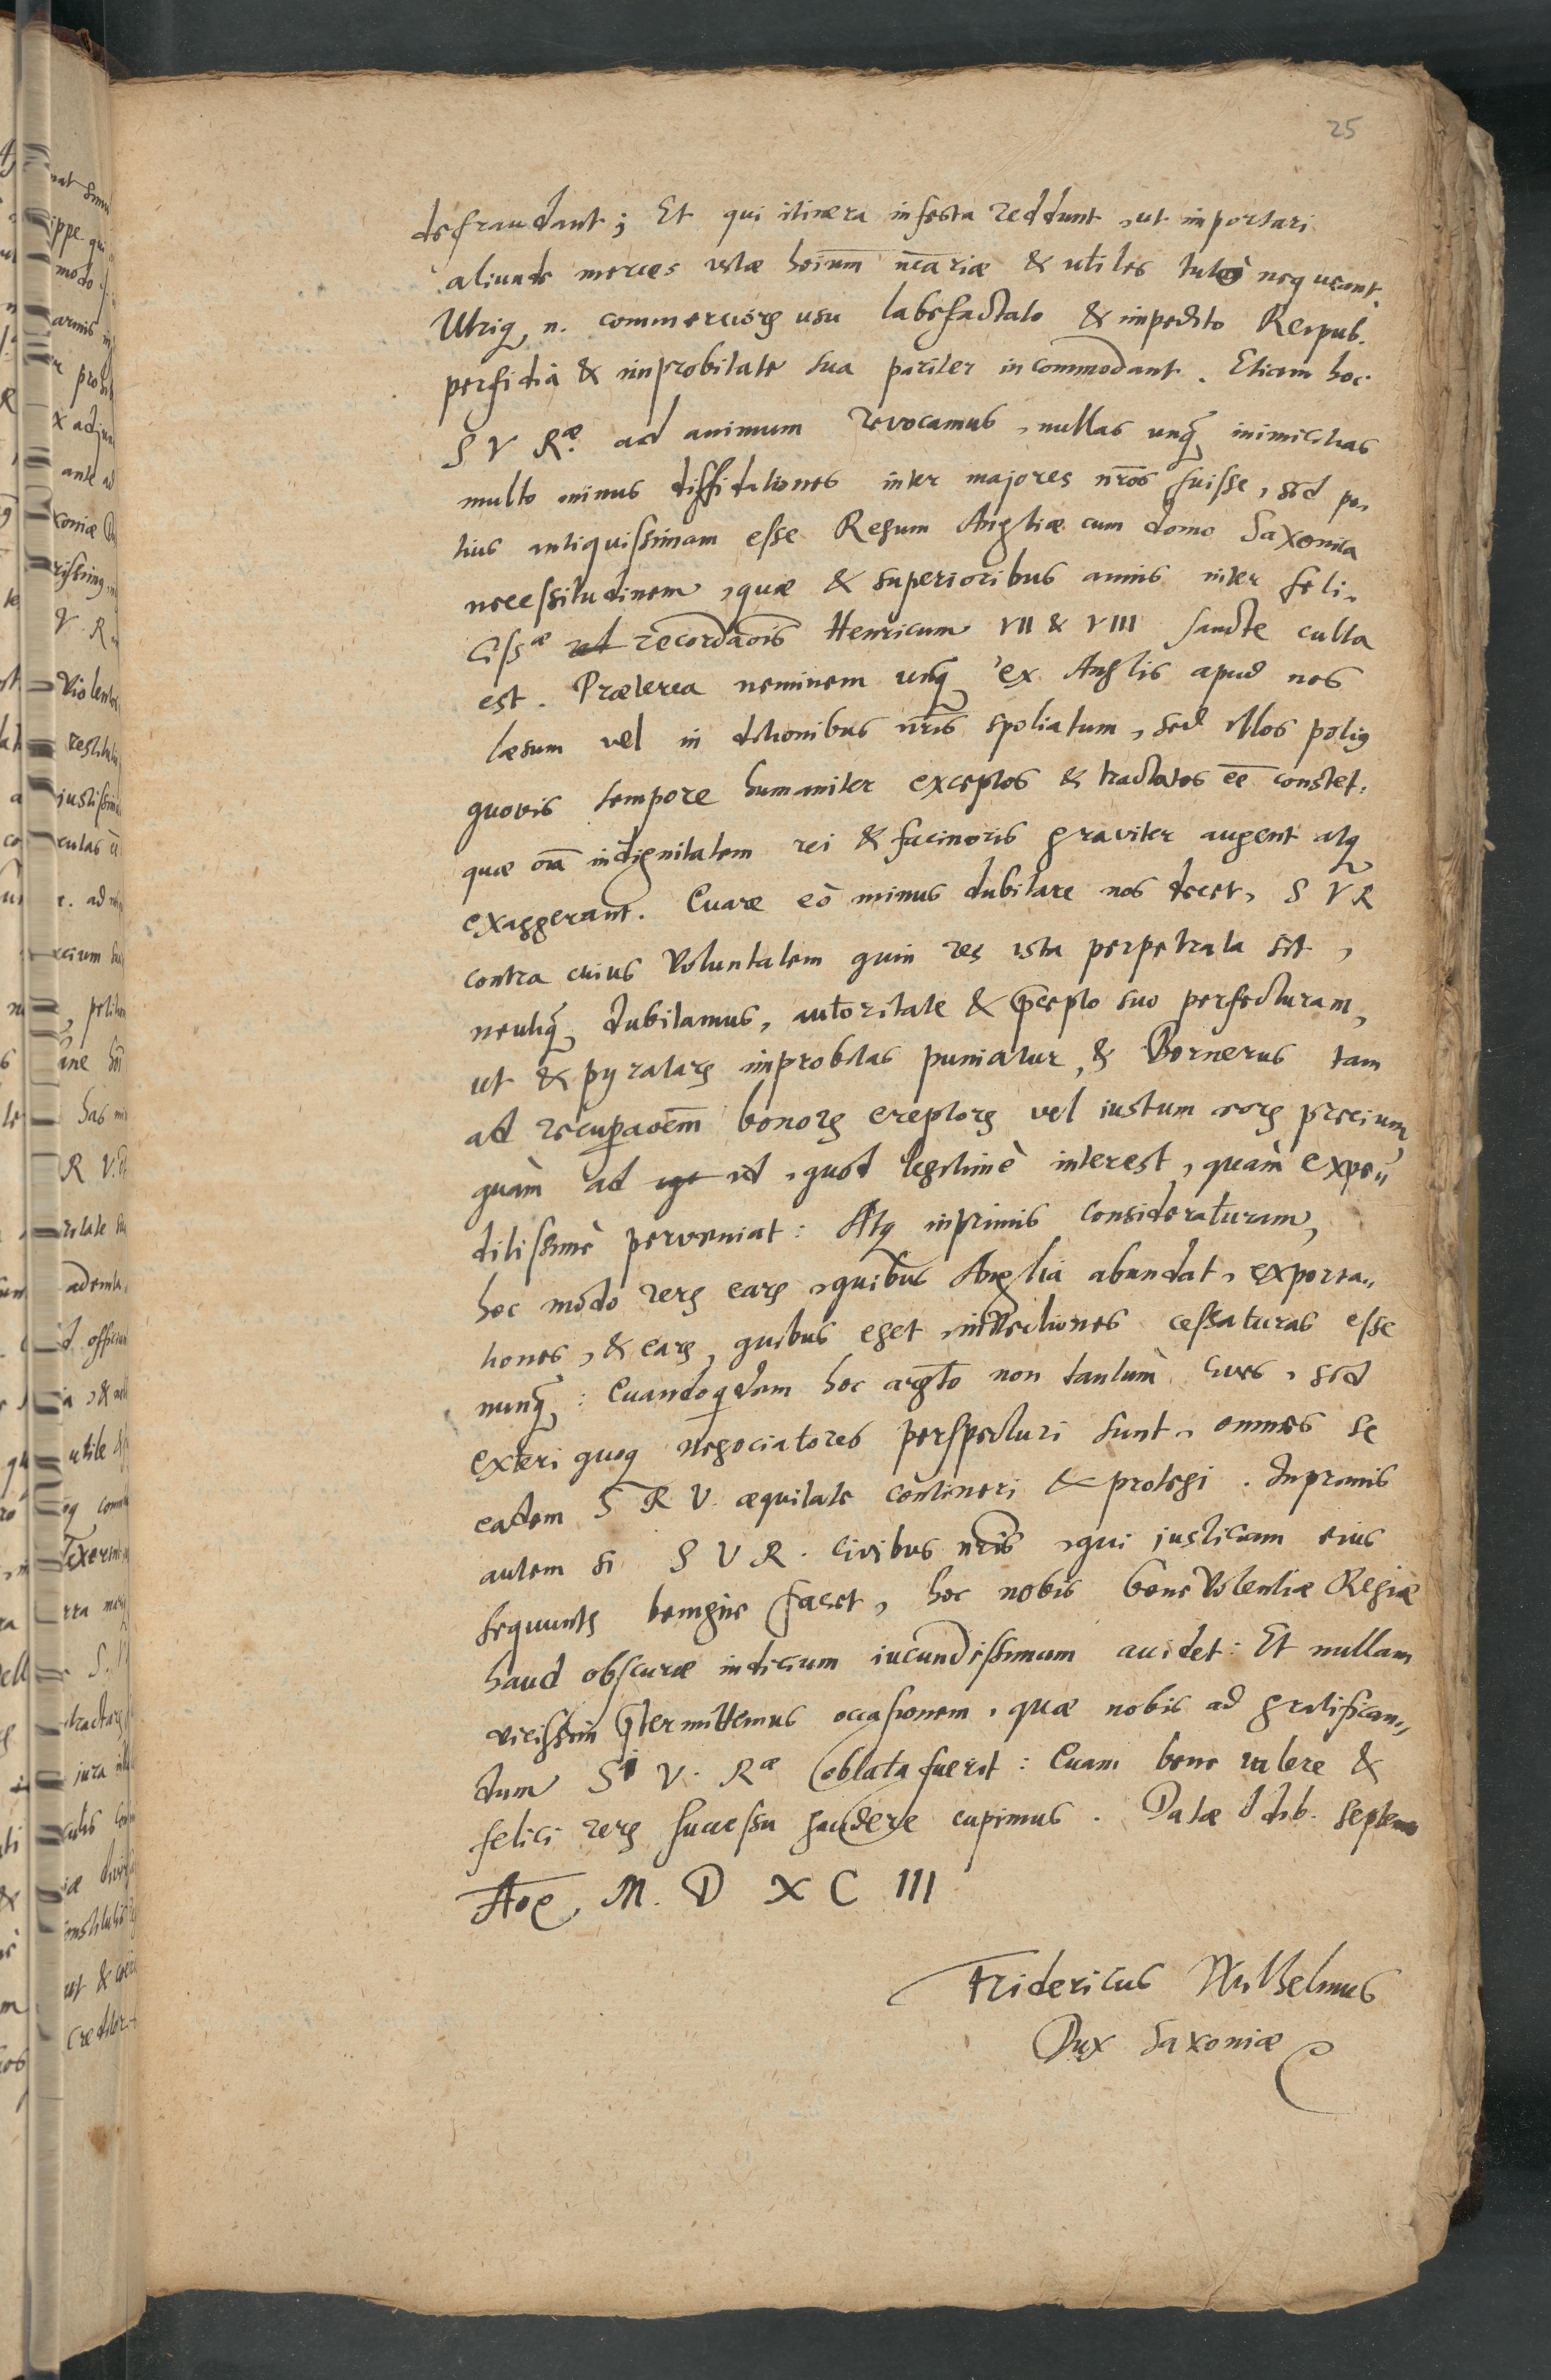 25
defraudant; Et qui itinera infesta reddunt, ut importari
aliunde merces vitae hoīum ncāriae & utiles tutò nequeant.
Utriq, n. commerciorꝫ usu labefactato & impedito Reipub.
perfidia & improbitate sua pariter incommodant. Etiam hoc
S V Rᵃᵉ. ad animum revocamus, nullas unq̃ inimicitias
multo minus diffidationes inter majores nr̄os fuisse, sed po,
tius antiquissimam esse Regum Angliae cum domo Saxonica
necessitudinem, quae & superioribus annis inter feli,
cissᵃᵉ recordaōis Henricum VII & VIII sancte culta
est. Praeterea neminem unq̃ ex Anglis apud nos
laesum vel in ditionibus nr̄is spoliatum, sed illos potiꝰ
quovis tempore humaniter exceptos & tractatos eē constet.
quae oīa indignitatem rei & facinoris graviter augent atq
exaggerant. Quare eò minus dubitare nos decet, S V R
contra cuius voluntatem quin res ista perpetrata sit,
neutiq̃ dubitamus, autoritate & p̄cepto suo perfecturam,
ut & pyratarꝫ improbitas puniatur, & Bornerus tam
ad recuperaōem bonorꝫ ereptorꝫ vel iustum eorꝫ precium
quàm ad id, quod legitimè interest, quàm expe,,
ditissimè perveniat: Atq inprimis consideraturam,
hoc modo rerꝫ earꝫ, quibus Anglia abundat, exporta,,
tiones, & earꝫ, quibus eget, invectiones cessaturas esse
nunq̃: Quandoqdem hoc argt̄o non tantum cives, sed
exteri quoq negociatores perspecturi sunt, omnes se
eadem S R V. aequitate contineri & protegi. Inprimis
autem si S V R. civibus nr̄is, qui justiciam eius
sequuntꝫ benigne favet, hoc nobis benevolentiae Regiae
haud obscurae indicium iucundissimum accidet: Et nullam
vicissim p̄termittemus occasionem, quae nobis ad gratifican,,
dum S V. Rᵃᵉ oblata fuerit: Quam bene valere &
felici rerꝫ successu gaudere cupimus. Datae Idib. Septemb
Aōe M. D X C III
Fridericus Wilhelmus
Dux Saxoniae